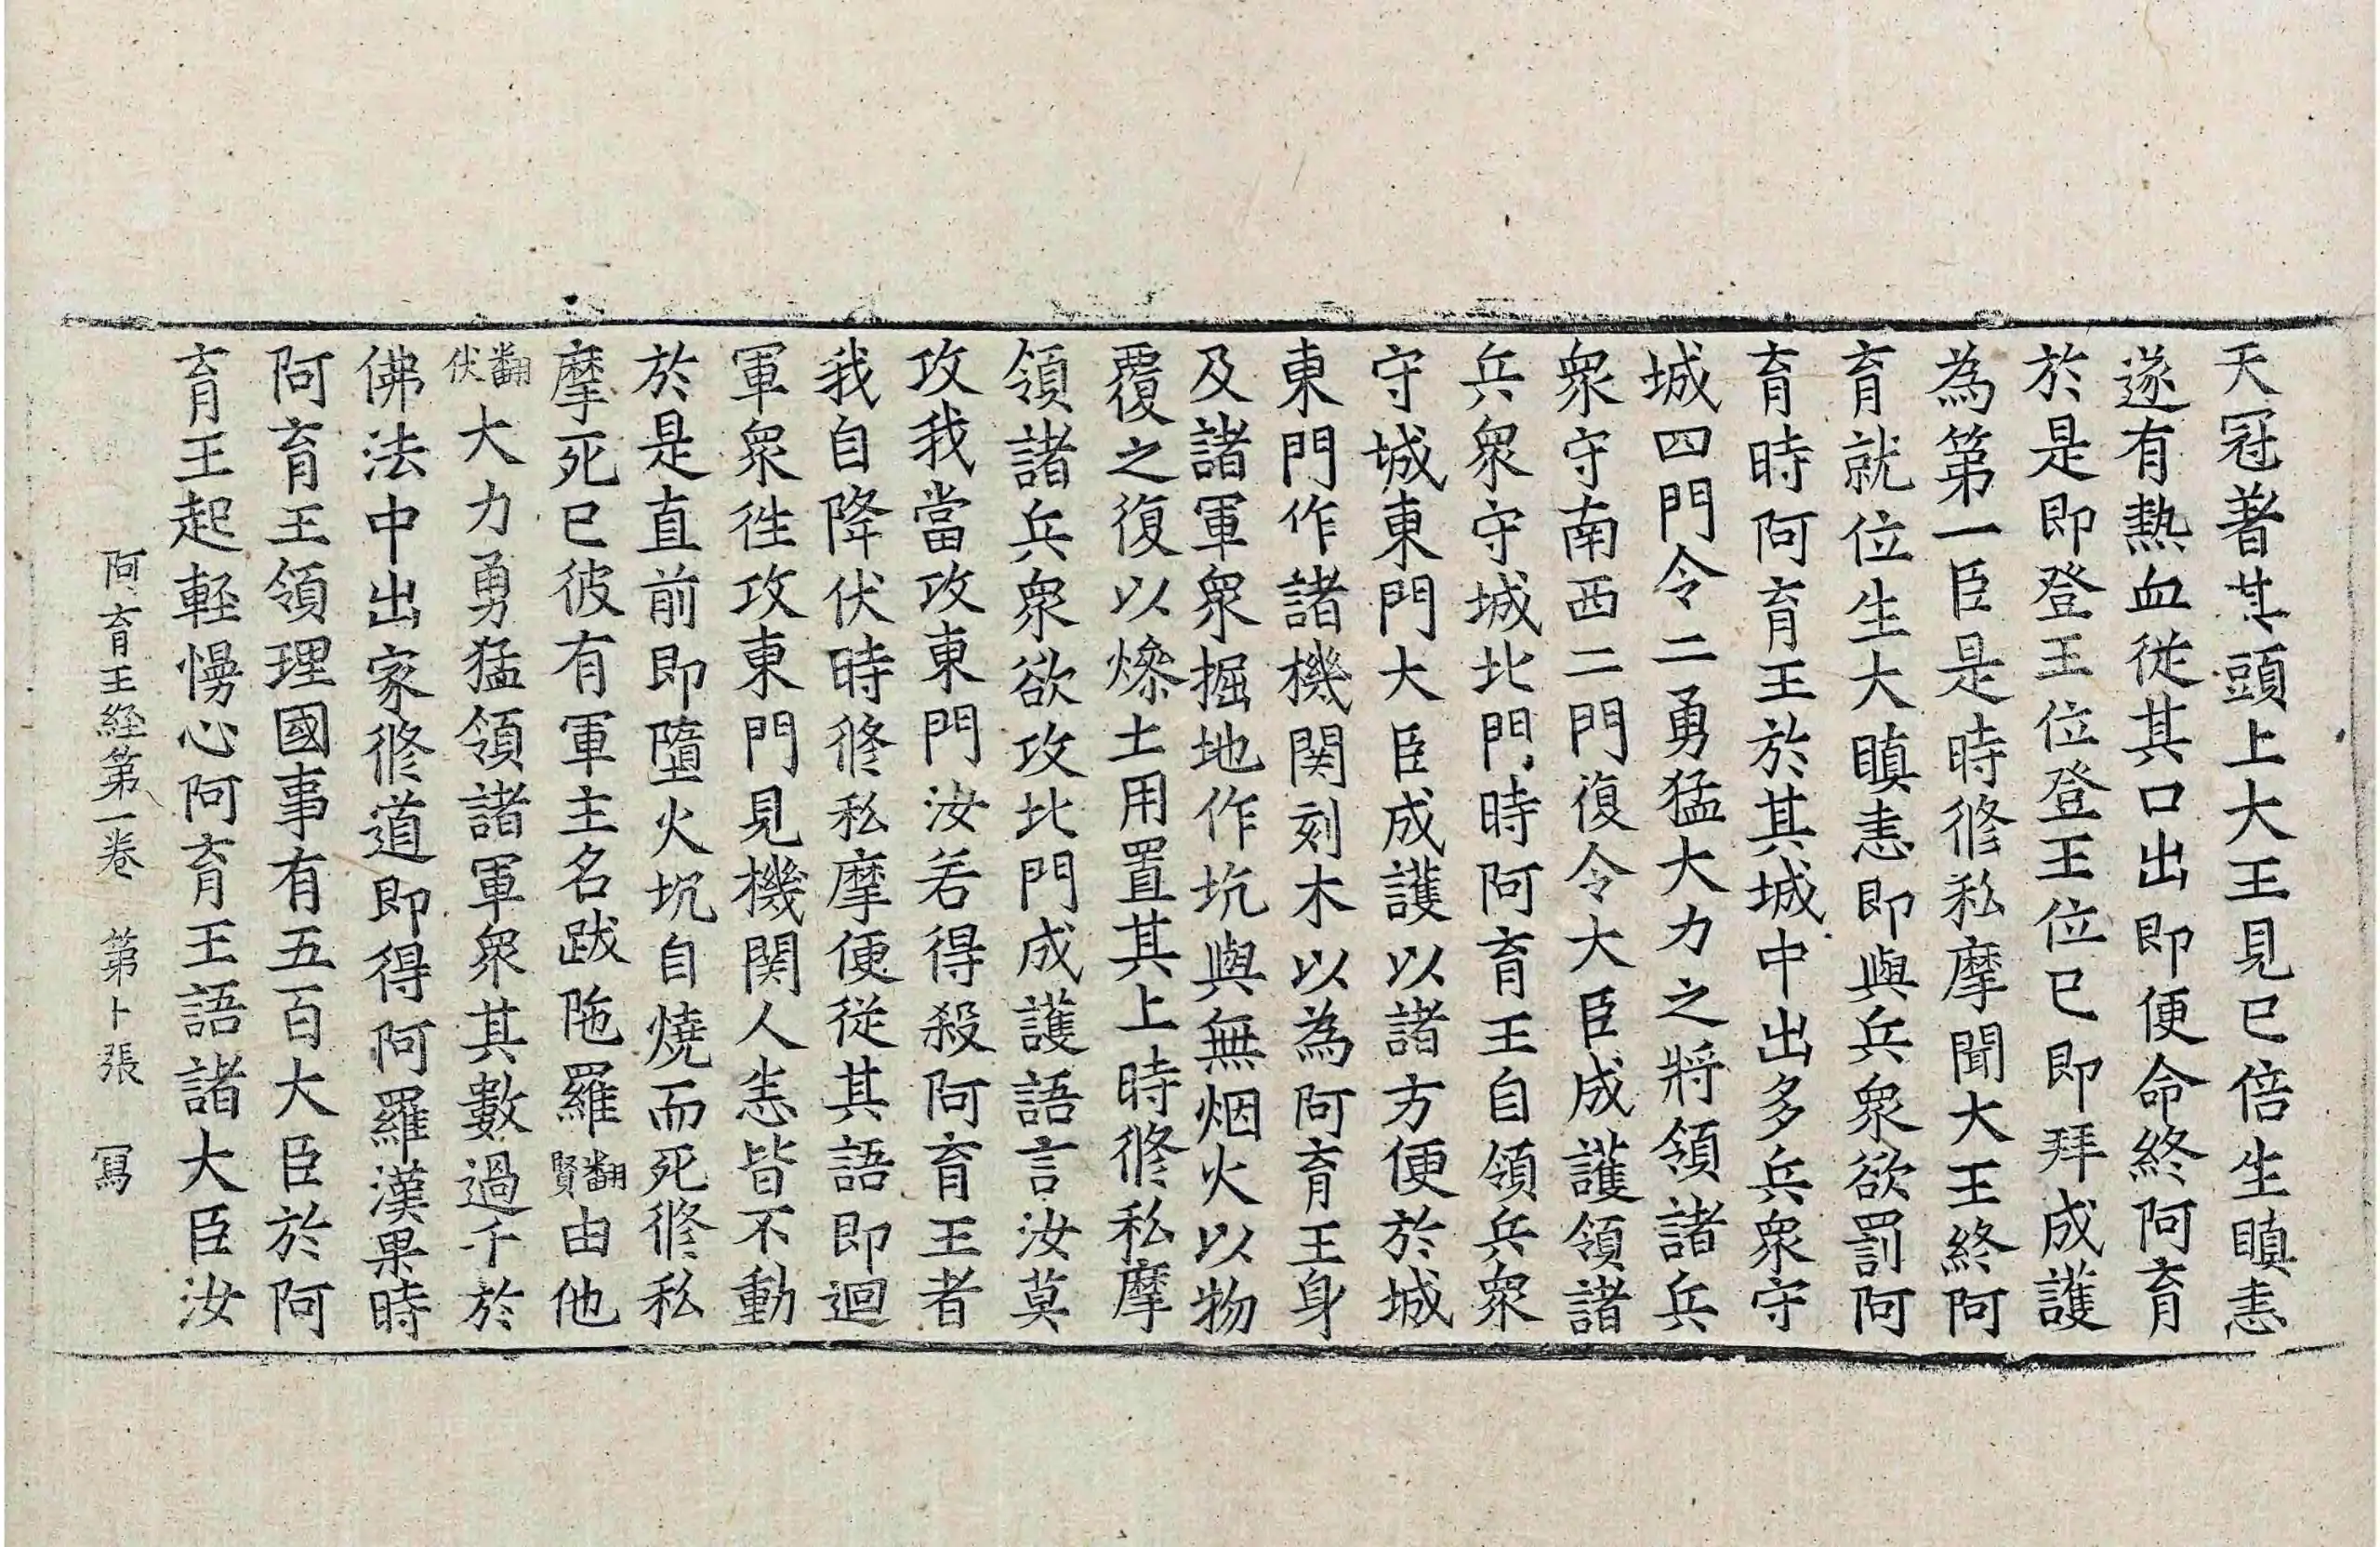 天冠著其頭上大王見已倍生瞋恚
遂有熱血從其口出即便命終阿育
於是即登王位登王位已即拜成護
為第一臣是時修私摩聞大王終阿
育就位生大瞋恚即與兵衆欲罰阿
育時阿育王於其城中出多兵衆守
城四門令二勇猛大力之將領諸兵
衆守南西二門復令大臣成護領諸
兵衆守城北門時阿育王自領兵衆
守城東門大臣成護以諸方便於城
東門作諸機関刻木以為阿育王身
及諸軍衆掘地作坑與無烟火以物
覆之復以燥土用置其上時修私摩
領諸兵衆欲攻北門成護語言汝莫
攻我當攻東門汝若得殺阿育王者
我自降伏時修私摩便從其語即迴
軍衆徃攻東門見機関人恚皆不動
於是直前即墮火坑自燒而死修私
摩死已彼有軍主名跋陁羅翻賢由他
翻伏大力勇猛領諸軍衆其數過千於
佛法中出家修道即得阿羅漢果時
阿育王領理國事有五百大臣於阿
育王起輕慢心阿育王語諸大臣汝
阿育王経第一卷　第卜張　冩